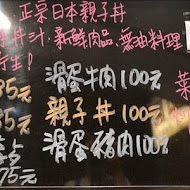 正宗日本親子丼
丼汁:新鮮肉品、醬油料理
行生!
滑蛋牛肉100元
35元
親子丼100元
35元
滑蛋豬肉100元
75元
菜